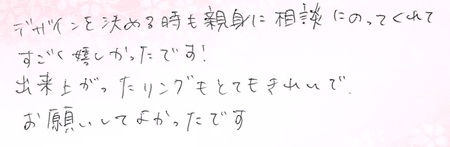 デザインを決める時も親身に相談にのってくれて
すごく嬉しかったです!
出来上がったリングもとてもきれいで.
お願いしてよかったです